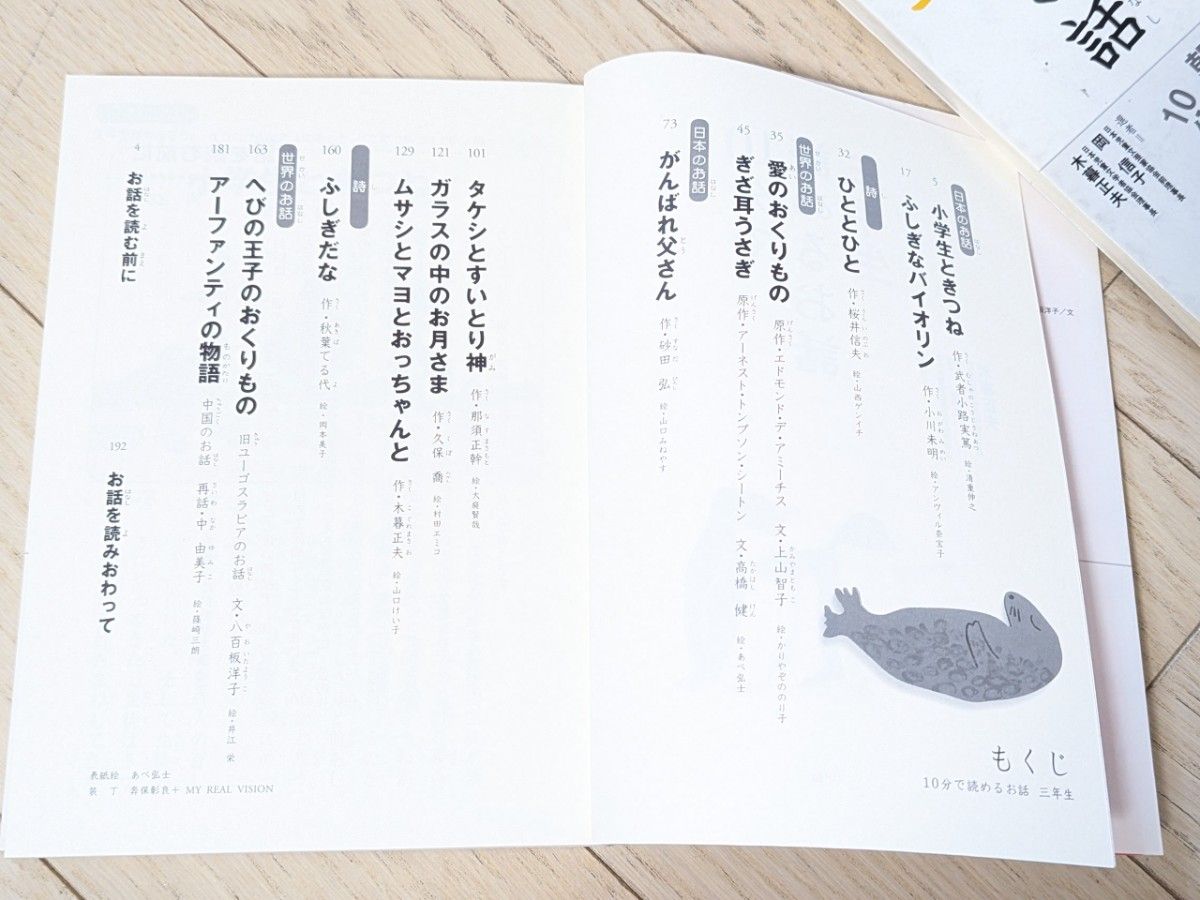 もくじ
10分で読めるお話 三年生
日本のお話
5 小学生ときつね 作・武者小路実篤 絵・清重伸之
17 ふしぎなバイオリン 作・小川未明 絵・アンヴィル奈宝子
詩
32 ひととひと 作・桜井信夫 絵・山西ゲンイチ
世界のお話
35 愛のおくりもの 原作・エドモンド・デ・アミーチス 文・上山智子 絵・かりやぞののり子
45 ぎざ耳うさぎ 原作・アーネスト・トンプソン・シートン 文・高橋健 絵・あべ弘士
日本のお話
73 がんばれ父さん 作・砂田弘 絵・山口みねやす
101 タケシとすいとり神 作・那須正幹 絵・大庭賢哉
121 ガラスの中のお月さま 作・久保喬 絵・村田エミコ
129 ムサシとマヨとおっちゃんと 作・木暮正夫 絵・山口けい子
詩
160 ふしぎだな 作・秋葉てる代 絵・岡本美子
世界のお話
163 へびの王子のおくりもの 旧ユーゴスラビアのお話 文・八百板洋子 絵・井江栄
181 アーファンティの物語 中国のお話 再話・中由美子 絵・篠崎三朗
4 お話を読む前に
192 お話を読みおわって
表紙絵 あべ弘士
装丁 呑保彰良+MY REAL VISION
話
10
選者
日本児童文芸家協会前理事長
岡信子
日本児童文学者協会元理事長
木暮正夫
洋子/文